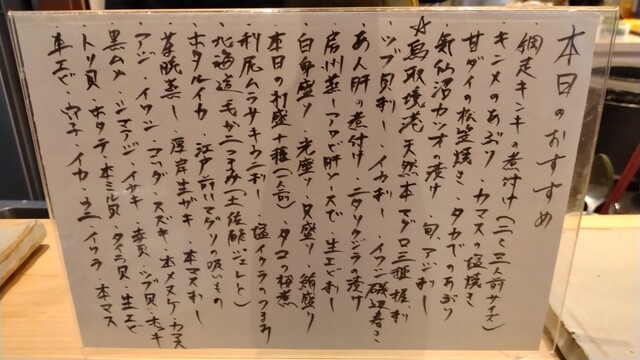 本日のおすすめ
・網走キンキの煮付け(二〜三人前サイズ)
キンメのあぶり・カマスの塩焼き
甘ダイの松笠焼き・タカベのあぶり
・気仙沼カツオの漬け・旬、アジ刺し
☆鳥取境港 天然本マグロ三種握り
・ツブ貝刺し・イカ刺し・イワシ磯辺巻き
あん肝の煮付け・ニタリクジラの漬け
・房州蒸しアワビ肝ソースで・生エビ刺し
・白身盛り・光盛り・貝盛り・鮪盛り
・本日の刺盛十種(一人前)・タコの桜煮
・利尻ムラサキウニ刺し・塩イクラのつまみ
・北海道毛ガニつまみ(土佐酢ジュレと)
・ホタルイカ・江戸前ハマグリの吸いもの
・茶碗蒸し・厚岸生ガキ・本マス刺し
・アジ・イワシ・コハダ・スズキ・本メヌケ・カマス
・黒ムツ・シマアジ・イサキ・赤貝・ツブ貝・ホッキ
・トリ貝・ホタテ・本ミル貝・タイラ貝・生エビ
・車エビ・穴子・イカ・ウニ・イクラ・本マス